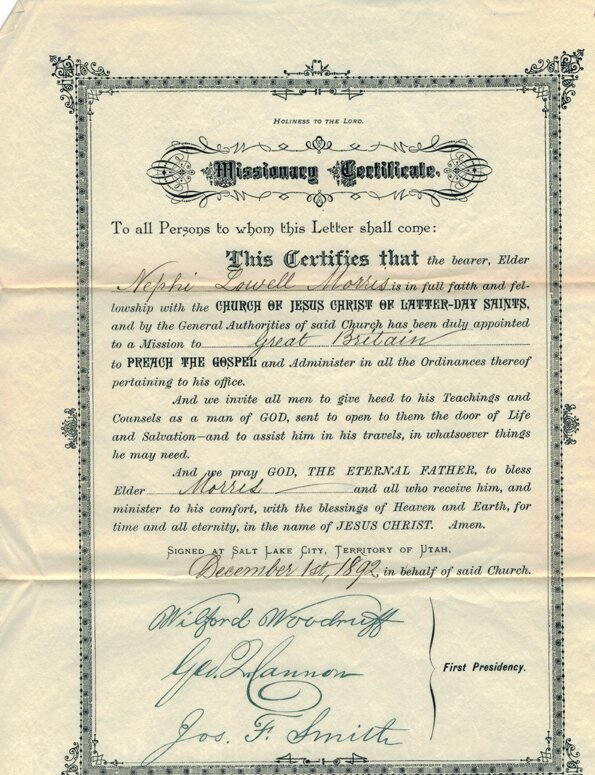 HOLINESS TO THE LORD.
Missionary Certificate.
To all Persons to whom this Letter shall come:
This Certifies that the bearer, Elder
Nephi Lowell Morris is in full faith and fel-
lowship with the CHURCH OF JESUS CHRIST OF LATTER-DAY SAINTS,
and by the General Authorities of said Church has been duly appointed
to a Mission to Great Britain
to PREACH THE GOSPEL and Administer in all the Ordinances thereof
pertaining to his office.
And we invite all men to give heed to his Teachings and
Counsels as a man of GOD, sent to open to them the door of Life
and Salvation—and to assist him in his travels, in whatsoever things
he may need.
And we pray GOD, THE ETERNAL FATHER, to bless
Elder Morris and all who receive him, and
minister to his comfort, with the blessings of Heaven and Earth, for
time and all eternity, in the name of JESUS CHRIST. Amen.
SIGNED AT SALT LAKE CITY, TERRITORY OF UTAH,
December 1st, 1892 in behalf of said Church.
Wilford Woodruff
Geo. Q. Cannon
First Presidency.
Jos. F. Smith